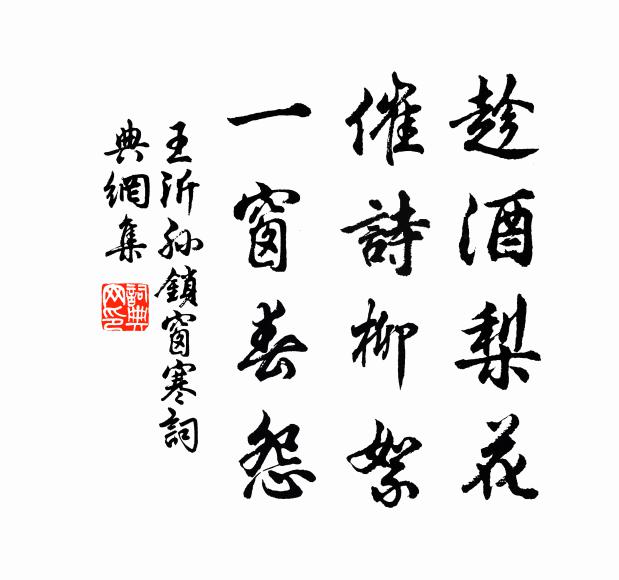 趁酒梨花
催詩柳絮
一窗春怨
王沂孙鎖窗寒詞
典網集
詞典
网印